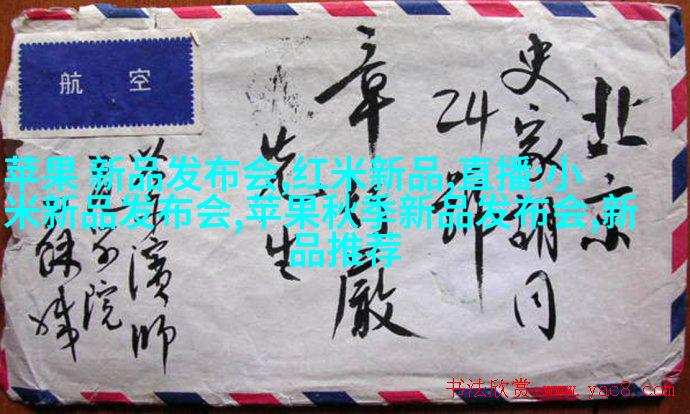 航 空
北京
史家胡同
24号
章
先生
苹果 新品发布会,红米新品,直播:小
米新品发布会,苹果秋季新品发布会,新
品推荐
书法欣赏 www.yac8.com